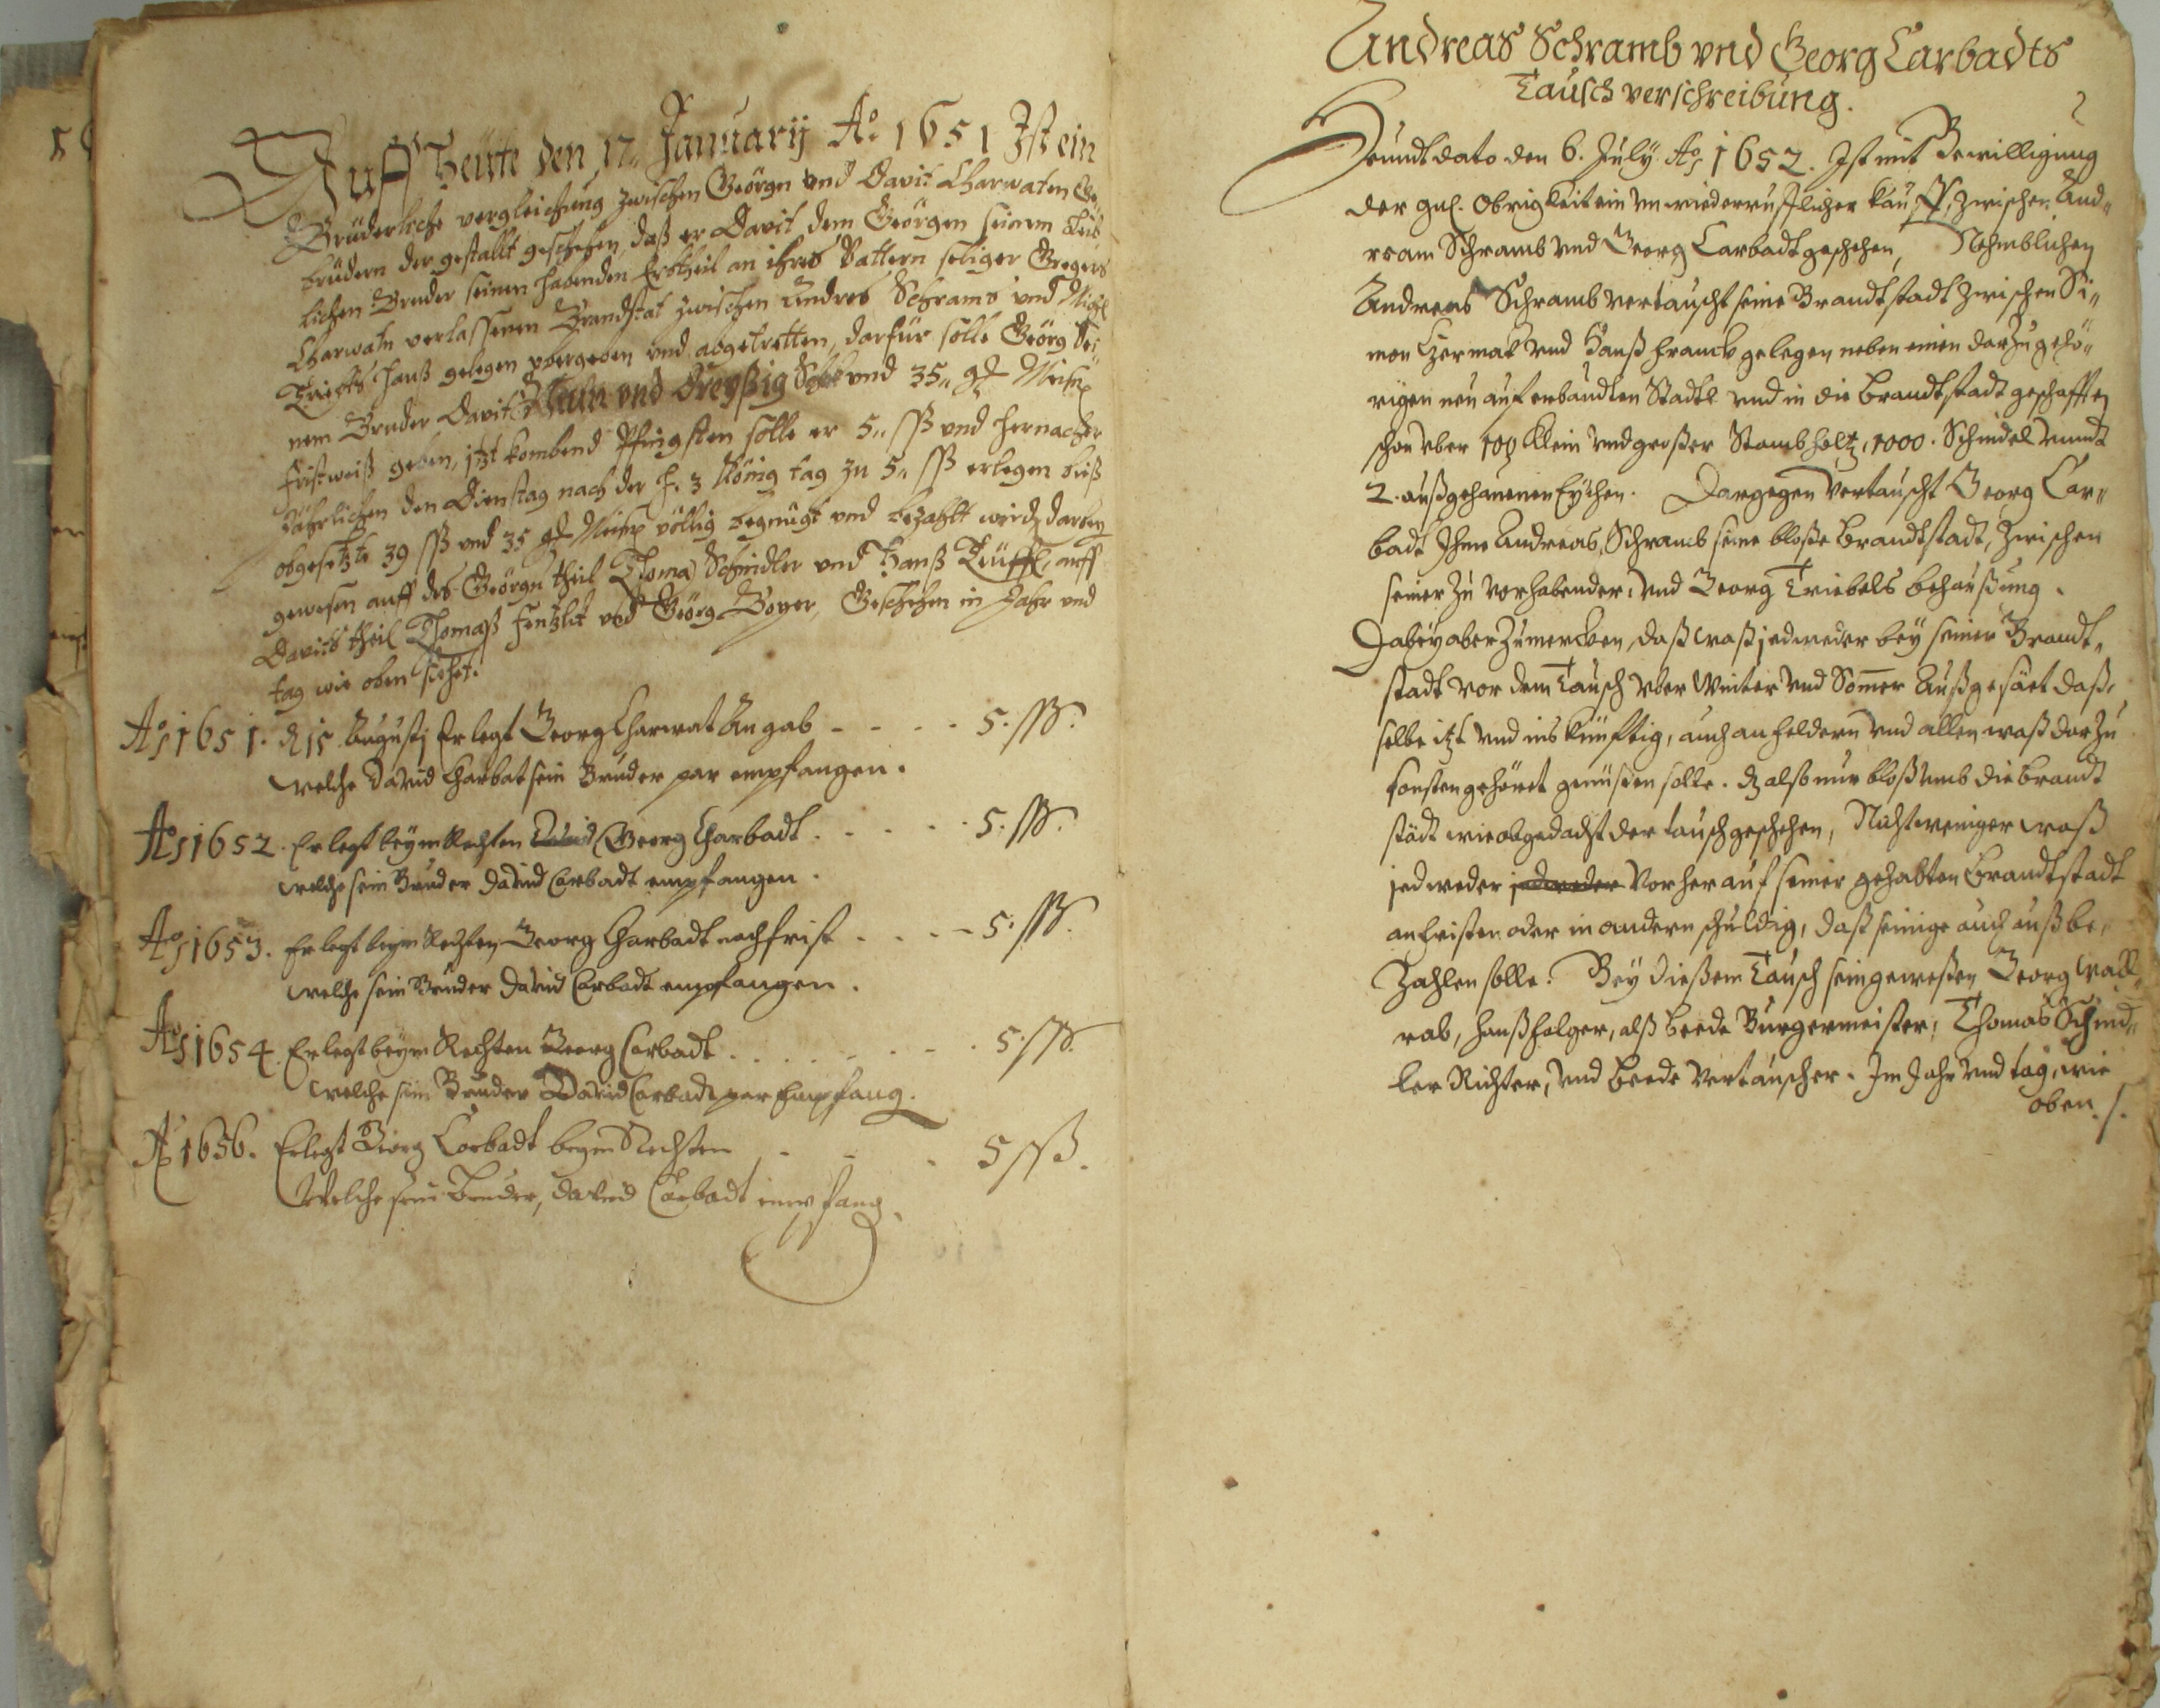 Auff Heütte den 17. Januarij A° 1651 Ist ein
Brüderliche vergleichung zwischen Geörgn vnd Davit Charwaten Ge¸
brüdern der gestallt geschehen, daß er Davit dem Geörgen seinem
lichen Bruder seinen habenden Erbtheil an ihres Vattern seliger Gregers
Charwatn verlassenen Brandstat zwischen Andres Schramb vnd Michl
Hanß gelegen vbergeben vnd abgetretten, darfür solle Geörg Sei
nem Bruder Davit Neün vnd Dreyßig Schok vnd 35„ gl Meiß
fristweiß geben, jtzt kombend Pfingsten solle er 5„ ßß vnd hernacher
Jährlichen den Dienstag nach der h. 3 König tag zu 5„ ßß erlegen biß
obgesetzte 39 ßß vnd 35 gl Meiß völlig begnügt vnd bezahlt wird, darbey
gewesen auff des Geörgn theil Thoma Schindler vnd Hanß Teüffl, auff
Davits theil Thomaß vnd Geörg Boyer, Geschehen in Jahr vnd
tag wie oben stehet.
A° 1651. d 15. Augustj Erlegt Georg Charwat An gab - - - - 5. ßß.
welche David Charbat sein Bruder par empfangen.
A° 1652. Erlegt beym Rechten David Georg Charbadt . . . . . 5. ßß.
welche sein Bruder David Carbadt empfangen.
A° 1653. Erlegt beym Rechten Georg Charbadt nachfrist . . . - 5. ßß.
welche sein Bruder David Carbadt empfangen.
A° 1654. Erlegt beym Rechten Georg Carbadt . . . . . . . 5. ßß.
welche sein Bruder David Carbadt par Empfang.
A° 1656. Erlegt Georg Carbadt beym Rechten - - - 5 ßß.
Welche sein Bruder, David Carbadt empfang.
Andreas Schramb vnd Georg Carbadts
Tausch verschreibung.
Heundt dato den 6. July A° 1652. Ist mit Bewilligung
der gnl. Obrigkeit ein vnwiederrufflicher Kauff, zwischen And„
ream Schramb vnd Georg Carbadt geschehen, Nehmblichen
Andreas Schramb vertauscht seine Brandtstadt zwischen Si„
mon Czermak vnd Hanß Franckh gelegen, neben einen darzu gehö„
rigen neu auf erbaudten Stadtl vnd in die Brandtstadt geschafften
schon vber klein vnd großer Stamb holtz, 1000. Schindel vnndt
2. außgehauenen Eychen. Dargegen vertauscht Georg Car„
badt Ihme Andreas Schramb seine bloße Brandtstadt, zwischen
seiner zu vorhabender, vnd Georg Triebels behaußung.
Dabey aber zu mercken, daß waß jedweder bey seiner Brandt„
stadt vor dem Tausch vber Winter vnd Sommer Außgesäet daß„
selbe itzt vnd ins künfftig, auch an feldern vnd allen waß darzu
sonsten gehöret genüssen solte. dz also nur bloß vmb die Brandt
städt wie obgedacht der tausch geschehen, Nicht weniger waß
jedweder jedweder vorher auf seiner gehabten Brandtstadt
an fristen oder in andern schuldig, daß seinige auch auß be„
zahlen solle. Bey dießem Tausch sein gewesen Georg Wall„
rab, Hanß folger, alß beede Burgermeister, Thomas Schind„
ler Richter, vnd beede vertauscher. Im Jahr vnd tag, wie
oben. /.